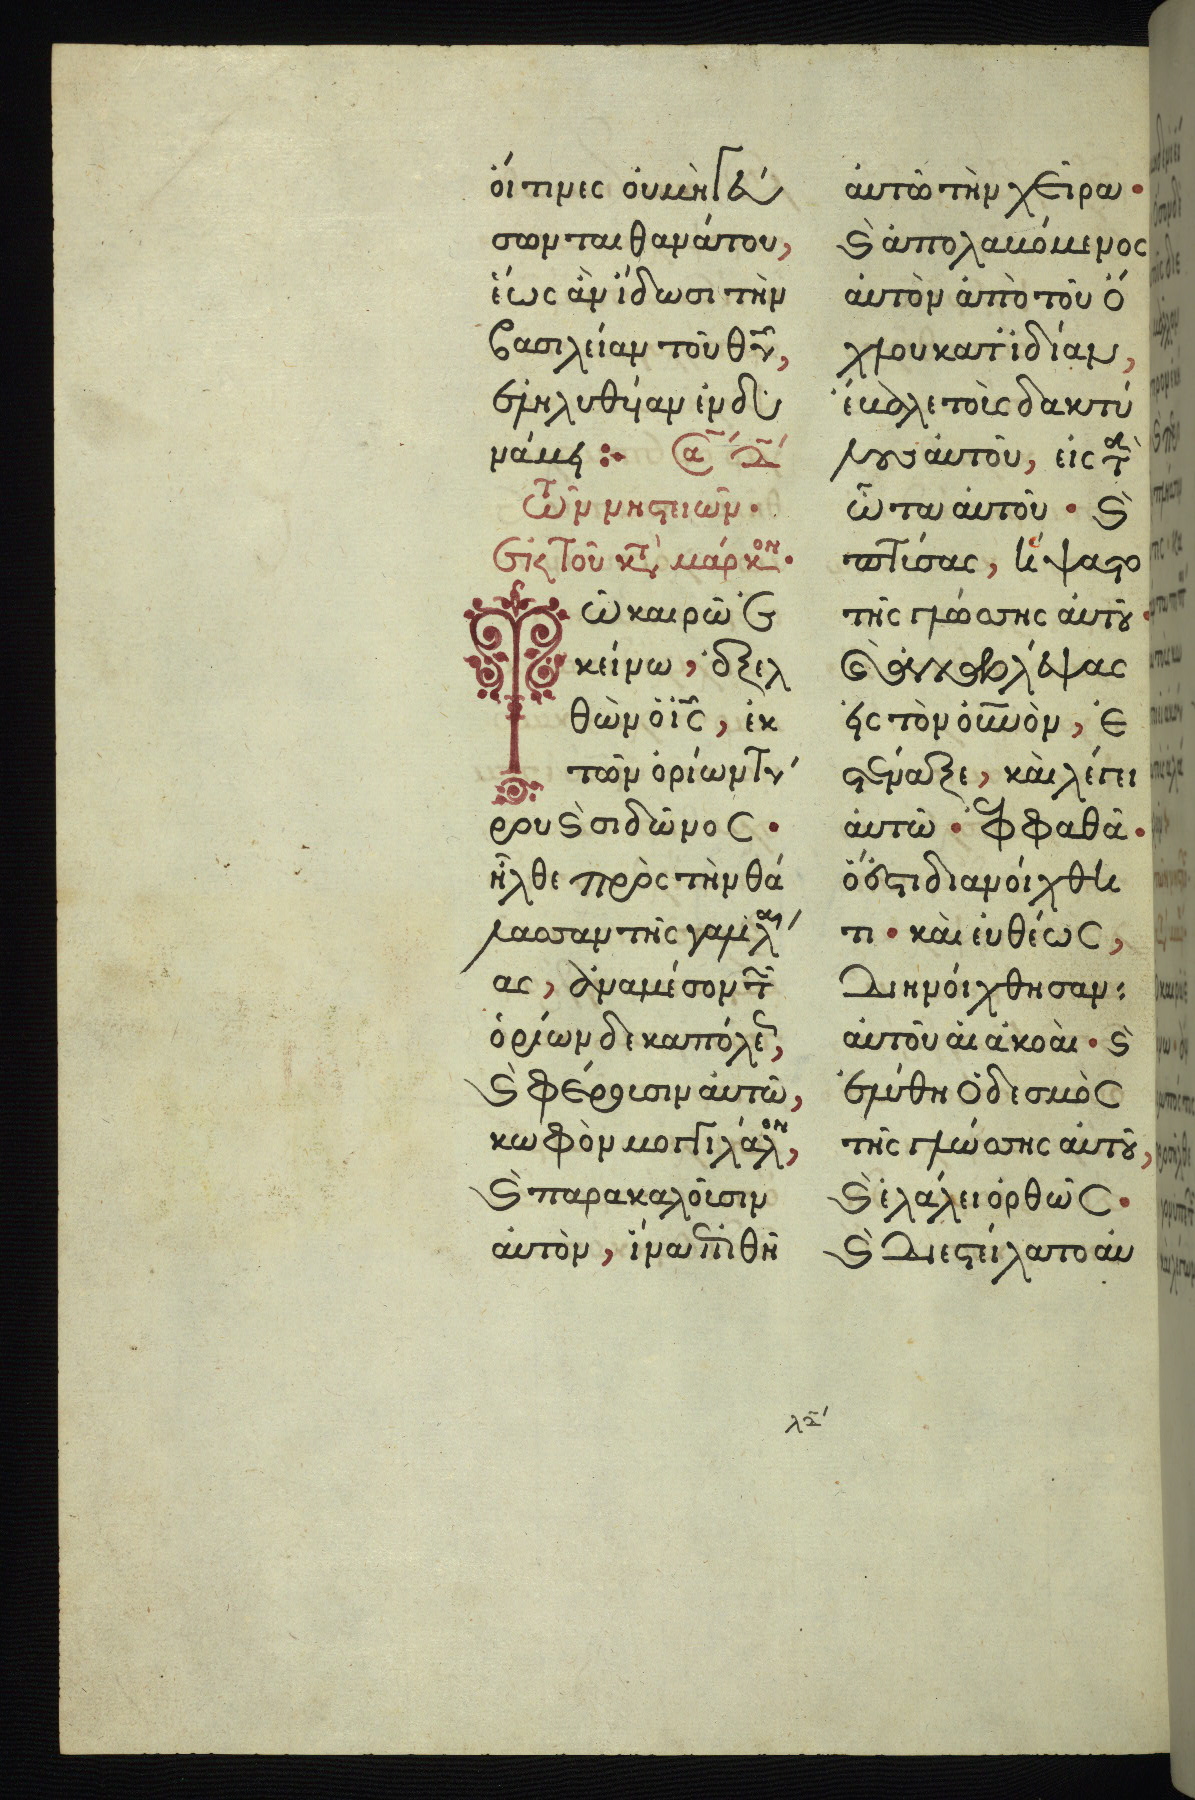 οἵ τινες οὐ μὴ γεύ
σωνται θανάτου,
ἕως ἂν ἴδωσι τὴν
βασιλείαν τοῦ θῦ,
ἐληλυθῆαν ἐν δυ
νάμει :
τῶν νηστειῶν ·
ἐκ τοῦ κτ μάρκον ·
Τῶ καιρῶ ἐ
κείνω, ἐξελ
θὼν ὁ ἰς, ἐκ
τῶν ὁρίων τύ
ρου ϗ σιδῶνος ·
ἦλθε πρὸς τὴν θά
λασσαν τῆς γαλιλαί
ας, ἀναμέσον τῶν
ὁρίων δεκαπόλεως,
ϗ φέρουσιν αὐτῶ,
κωφὸν μογγιλάλον,
ϗ παρακαλοῦσιν
αὐτὸν, ἵνα ἐπιθῆ
αὐτῶ τὴν χεῖρα ·
ϗ ἀπολαβόμενος
αὐτὸν ἀπὸ τοῦ ὄ
χλου κατ ϊδίαν,
ἔβαλε τοὺς δακτύ
λους αὐτοῦ, εἰς τὰ
ὦτα αὐτοῦ · ϗ
πτύσας, ἥψατο
τῆς γλώσσης αὐτοῦ ·
ϗ ἀναβλέψας
εἰς τὸν οὐνὸν, ἐ
στέναξε, καὶ λέγει
αὐτῶ · ἐφφαθά ·
ὅ ἐστι διανοίχθη
τι · καὶ εὐθέως,
διηνοίχθησαν
αὐτοῦ αἱ ἀκοαὶ · ϗ
ἐλύθη ὁ δεσμὸς
τῆς γλώσσης αὐτοῦ,
ϗ ἐλάλει ὀρθῶς ·
ϗ διεστείλατο αὐ
λδ´